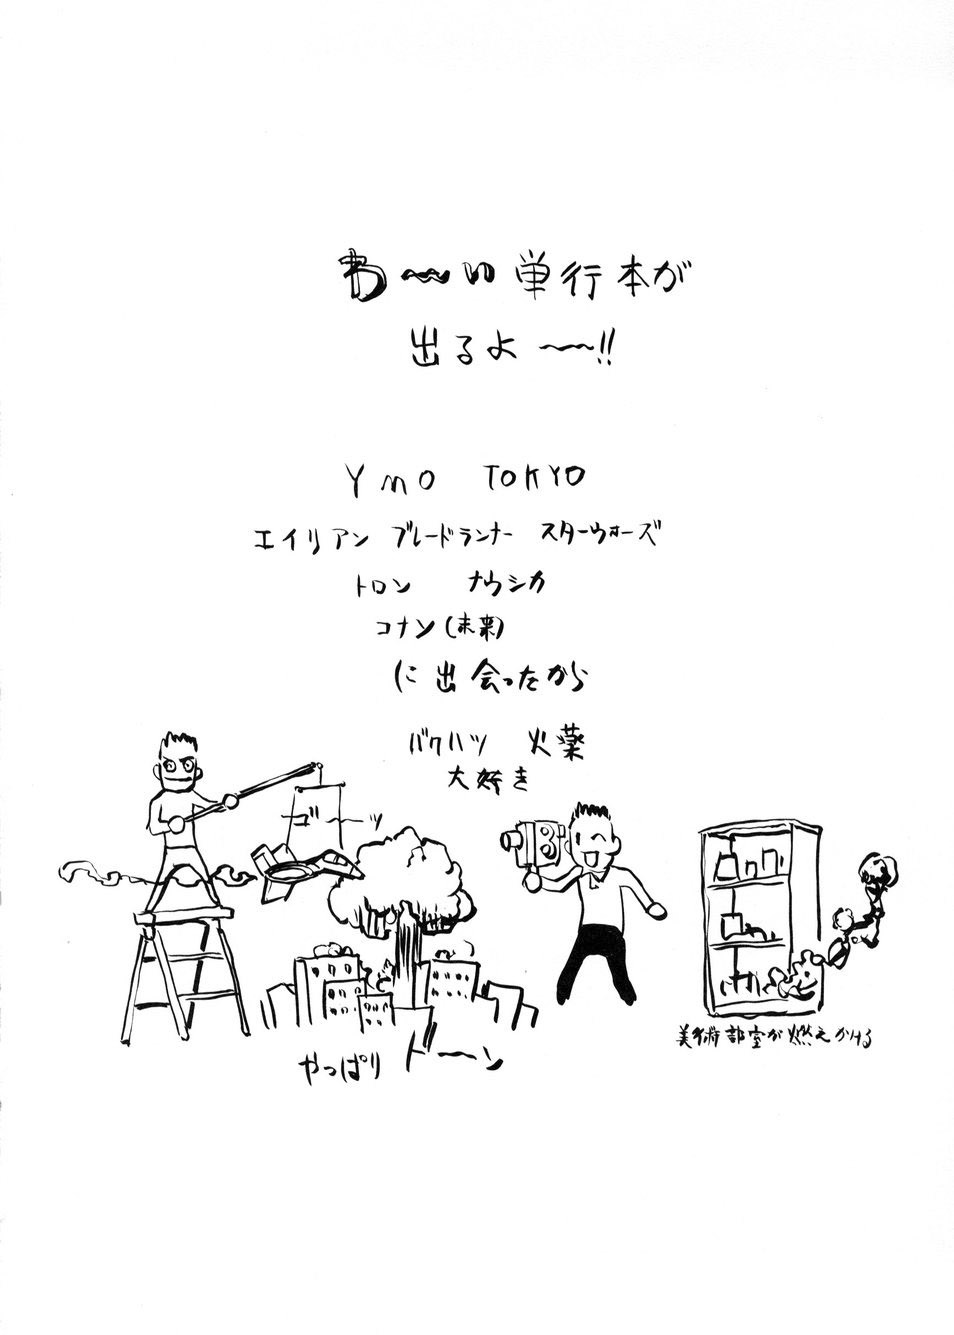 わ〜〜い単行本が
出るよ〜〜!!
YMO TOKYO
エイリアン ブレードランナー スターウォーズ
トロン ナウシカ
コナン(未来)
に出会ったから
バクハツ 火薬
大好き
ゴーーッ
やっぱり ドーーン
美術部室が燃えかける